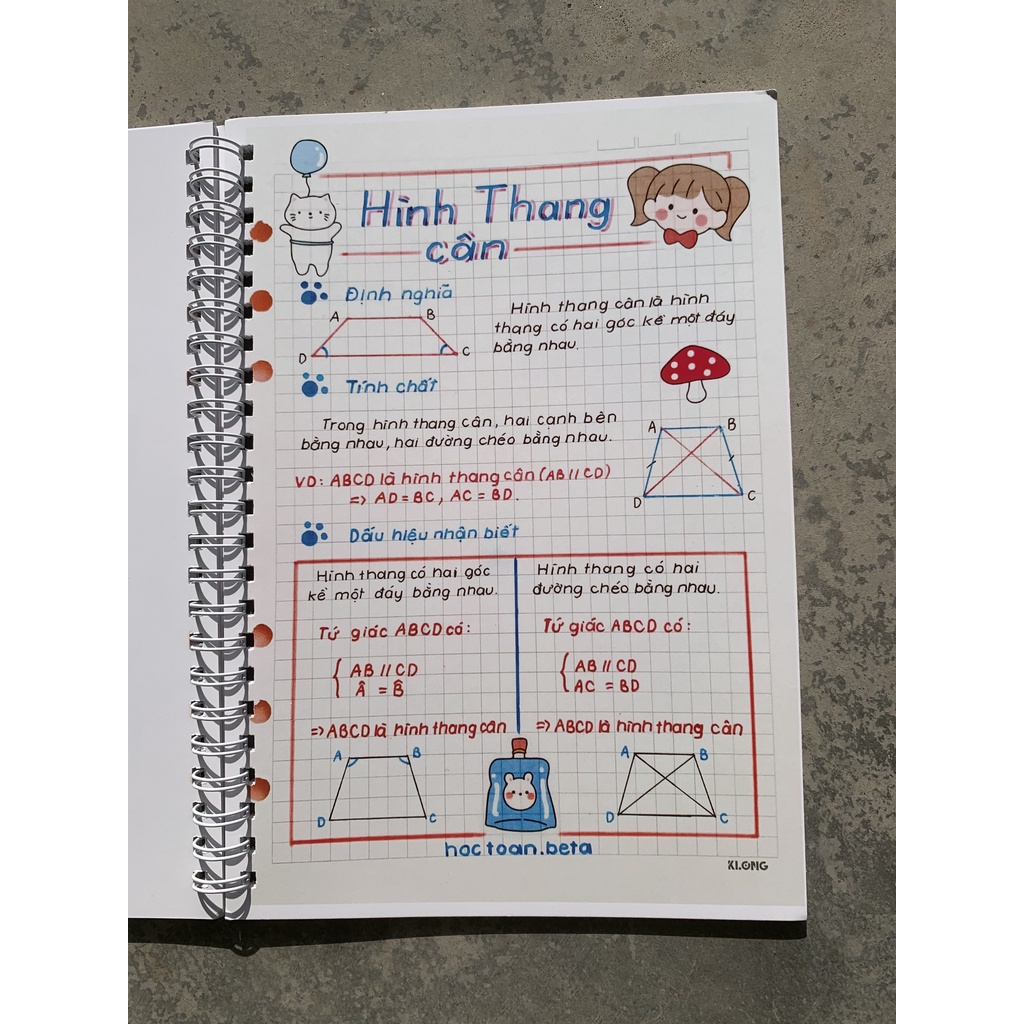 Hình Thang
cân
Định nghĩa
A
B
D
C
Hình thang cân là hình
thang có hai góc kề một đáy
bằng nhau.
Tính chất
Trong hình thang cân, hai cạnh bên
bằng nhau, hai đường chéo bằng nhau.
VD: ABCD là hình thang cân (AB // CD)
=> AD = BC, AC = BD.
A
B
D
C
Dấu hiệu nhận biết
Hình thang có hai góc
kề một đáy bằng nhau.
Tứ giác ABCD có:
{ AB // CD
Â = B̂
=> ABCD là hình thang cân
A
B
D
C
Hình thang có hai
đường chéo bằng nhau.
Tứ giác ABCD có:
{ AB // CD
AC = BD
=> ABCD là hình thang cân
A
B
D
C
hoctoan.beta
KLONG